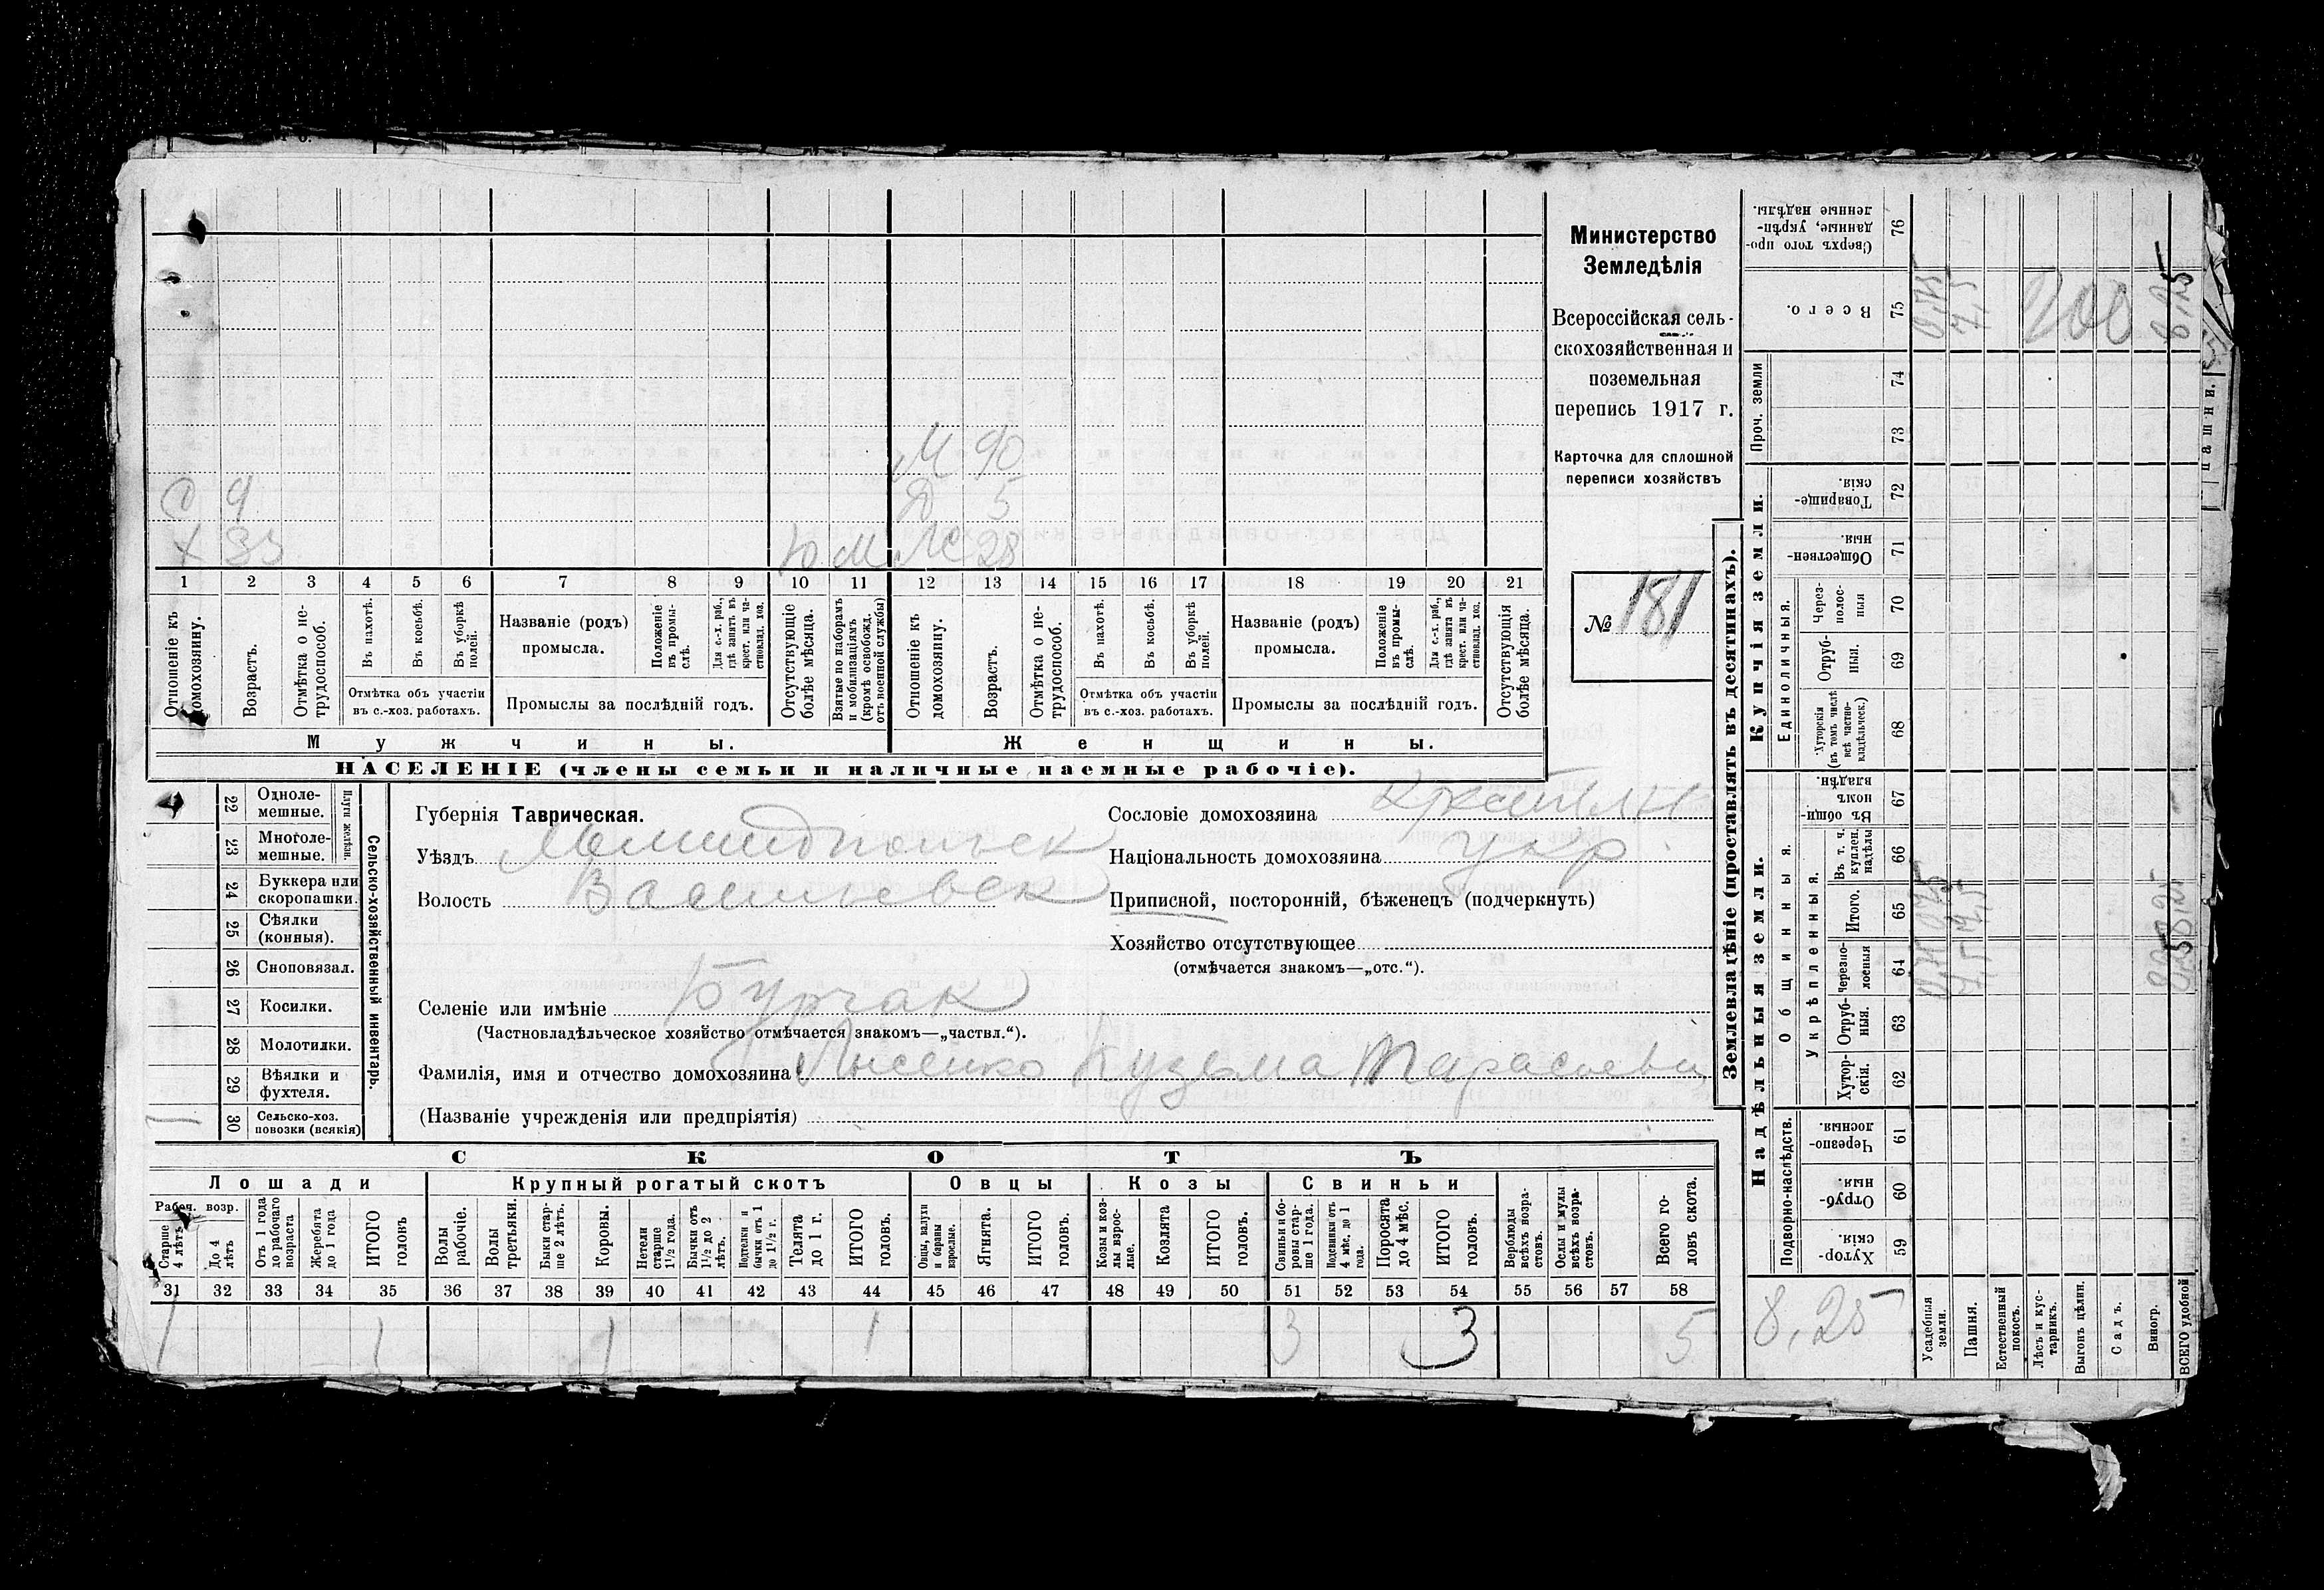 М 90
С 9
Д 5
Х 33
Ю М
Ж 28
1 2 3 4 5 6 7 8 9 10 11 12 13 14 15 16 17 18 19 20 21
Отношеніе къ домохозяину.
Возрастъ.
Отмѣтка о не-трудоспособ.
Въ пахотѣ.
Въ косьбѣ.
Въ уборкѣ полей.
Отмѣтка объ участіи
въ с.-хоз. работахъ.
Названіе (родъ)
промысла.
Положеніе въ промы-слѣ.
Для с.-х. раб., гдѣ занятъ въ крест. или ча-стновлад. хоз.
Промыслы за послѣдній годъ.
Отсутствующіе болѣе мѣсяца.
Взятые по наборамъ и мобилизаціямъ (кромѣ освобожд. отъ военной службы)
Отношеніе къ домохозяину.
Возрастъ.
Отмѣтка о не-трудоспособ.
Въ пахотѣ.
Въ косьбѣ.
Въ уборкѣ полей.
Отмѣтка объ участіи
въ с.-хоз. работахъ.
Названіе (родъ)
промысла.
Положеніе въ промы-слѣ.
Для с.-х. раб., гдѣ занята въ крест. или ча-стновлад. хоз.
Промыслы за послѣдній годъ.
Отсутствующія болѣе мѣсяца.
Мужчины.
Женщины.
НАСЕЛЕНІЕ (члены семьи и наличные наемные рабочіе).
Министерство
Земледѣлія
Всероссійская сель-
скохозяйственная и
поземельная
перепись 1917 г.
Карточка для сплошной
переписи хозяйствъ
№ 181
22 Одноле-
мешные.
23 Многоле-
мешные.
Плуги желѣзн.
24 Буккера или
скоропашки.
25 Сѣялки
(конныя).
26 Сноповязал.
27 Косилки.
28 Молотилки.
29 Вѣялки и
фухтеля.
30 Сельско-хоз.
повозки (всякія)
1
Сельско-хозяйственный инвентарь.
Губернія Таврическая.
Уѣздъ Мелитопольск
Волость Васильевск
Селеніе или имѣніе Бурчак
(Частновладѣльческое хозяйство отмѣчается знакомъ—„частвл.“).
Фамилія, имя и отчество домохозяина Лысенко Кузьма Тарасович
(Названіе учрежденія или предпріятія)
Сословіе домохозяина
Національность домохозяина укр
Приписной, посторонній, бѣженецъ (подчеркнуть)
Хозяйство отсутствующее
(отмѣчается знакомъ—„отс.“).
СКОТЪ
Лошади
Крупный рогатый скотъ
Овцы
Козы
Свиньи
Рабоч. возр.
Старше 4 лѣтъ
До 4 лѣтъ
Отъ 1 года до рабочаго возраста
Жеребята до 1 года
ИТОГО головъ
Волы рабочіе.
Волы третьяки.
Быки стар-ше 2 лѣтъ.
Коровы.
Нетели старше 1½ года.
Бычки отъ 1½ до 2 лѣтъ.
Подтелки и бычки отъ 1 до 1½ г.
Телята до 1 г.
ИТОГО головъ.
Овцы, валухи и бараны взрослые.
Ягнята.
ИТОГО головъ.
Козы и коз-лы взрос-лые.
Козлята
ИТОГО головъ.
Свиньи и бо-ровы стар-ше 1 года.
Подсвинки отъ 4 мѣс. до 1 года.
Поросята до 4 мѣс.
ИТОГО головъ.
Верблюды всѣхъ возра-стовъ.
Ослы и мулы всѣхъ возра-стовъ.
Всего го-ловъ скота.
31 32 33 34 35 36 37 38 39 40 41 42 43 44 45 46 47 48 49 50 51 52 53 54 55 56 57 58
1 1 1 1 3 3 5
Землевладѣніе (проставлять въ десятинахъ).
Надѣльныя земли.
Купчія земли.
Проч. земли
Подворно-наслѣдств.
Общинныя.
Укрѣпленныя.
Единоличныя.
Хутор-скія. 59
Отруб-ныя. 60
Черезпо-лосныя. 61
Хутор-скія. 62
Отруб-ныя. 63
Черезпо-лосныя 64
Итого. 65
Въ т. ч. куплен. надѣлы 66
Въ общин-номъ владѣн. 67
Хуторскія (въ томъ числѣ всѣ частно-владѣльческ.) 68
Отруб-ныя. 69
Через-полос-ныя 70
Обществен-ныя. 71
Товарище-скія. 72
73
74
Всего. 75
Сверхъ того про-данные, укрѣп-ленные надѣлы. 76
8,25
Усадебныя земли. 0,75 0,75 0,75
Пашня. 7,5 7,5 7,5
Естественный покосъ.
Лѣсъ и кус-тарникъ.
Выгонъ цѣлин.
Садъ.
Виногр.
ВСЕГО удобной 8,25 8,25 8,25
пашни.